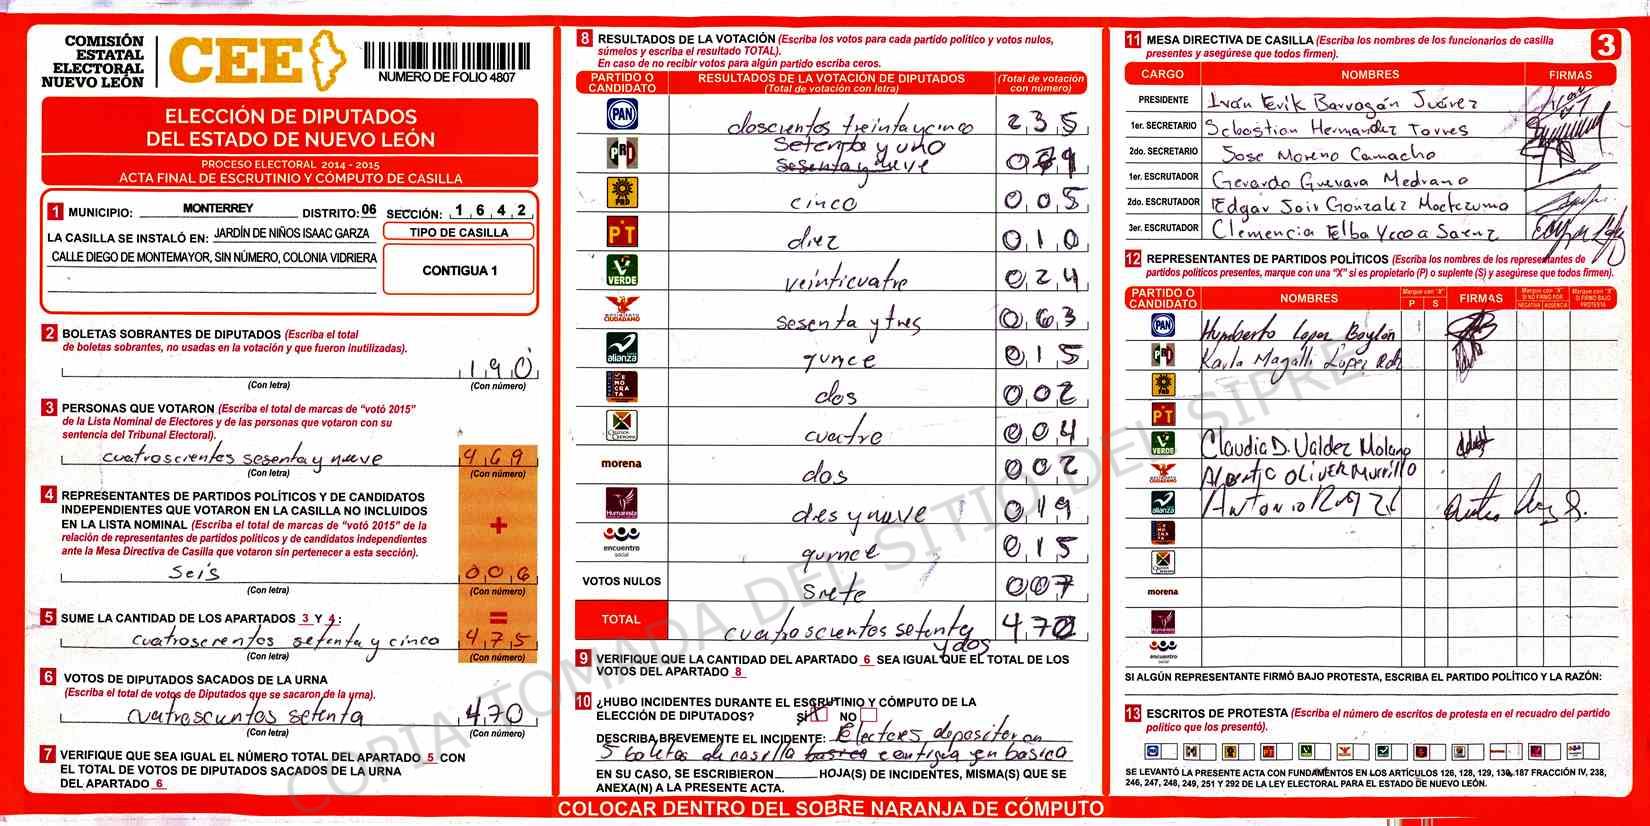 COMISIÓN
ESTATAL
ELECTORAL
NUEVO LEÓN
CEE
NUMERO DE FOLIO 4807
ELECCIÓN DE DIPUTADOS
DEL ESTADO DE NUEVO LEÓN
PROCESO ELECTORAL 2014 - 2015
ACTA FINAL DE ESCRUTINIO Y CÓMPUTO DE CASILLA
1 MUNICIPIO: MONTERREY DISTRITO: 06 SECCIÓN: 1 6 4 2
LA CASILLA SE INSTALÓ EN: JARDÍN DE NIÑOS ISAAC GARZA
CALLE DIEGO DE MONTEMAYOR, SIN NÚMERO, COLONIA VIDRIERA
TIPO DE CASILLA
CONTIGUA 1
2 BOLETAS SOBRANTES DE DIPUTADOS (Escriba el total
de boletas sobrantes, no usadas en la votación y que fueron inutilizadas).
190
(Con letra) (Con número)
3 PERSONAS QUE VOTARON (Escriba el total de marcas de “votó 2015”
de la Lista Nominal de Electores y de las personas que votaron con su
sentencia del Tribunal Electoral).
cuatroscientos sesenta y nueve 469
(Con letra) (Con número)
4 REPRESENTANTES DE PARTIDOS POLÍTICOS Y DE CANDIDATOS
INDEPENDIENTES QUE VOTARON EN LA CASILLA NO INCLUIDOS
EN LA LISTA NOMINAL (Escriba el total de marcas de “votó 2015” de la
relación de representantes de partidos políticos y de candidatos independientes
ante la Mesa Directiva de Casilla que votaron sin pertenecer a esta sección).
+
seis 006
(Con letra) (Con número)
=
5 SUME LA CANTIDAD DE LOS APARTADOS 3 Y 4:
cuatroscientos setenta y cinco 475
(Con letra) (Con número)
6 VOTOS DE DIPUTADOS SACADOS DE LA URNA
(Escriba el total de votos de Diputados que se sacaron de la urna).
cuatroscientos setenta 470
(Con letra) (Con número)
7 VERIFIQUE QUE SEA IGUAL EL NÚMERO TOTAL DEL APARTADO 5 CON
EL TOTAL DE VOTOS DE DIPUTADOS SACADOS DE LA URNA
DEL APARTADO 6
8 RESULTADOS DE LA VOTACIÓN (Escriba los votos para cada partido político y votos nulos,
súmelos y escriba el resultado TOTAL).
En caso de no recibir votos para algún partido escriba ceros.
PARTIDO O CANDIDATO
RESULTADOS DE LA VOTACIÓN DE DIPUTADOS
(Total de votación con letra)
(Total de votación con número)
PAN doscientos treinta y cinco 235
PRI setenta y uno
sesenta y nueve 071
PRD cinco 005
PT diez 010
VERDE veinticuatro 024
MOVIMIENTO CIUDADANO sesenta y tres 063
alianza quince 015
DEMOCRATA dos 002
cuatro 004
morena dos 002
Humanista dies y nueve 019
encuentro social quince 015
VOTOS NULOS siete 007
TOTAL cuatroscientos setenta y dos 472
9 VERIFIQUE QUE LA CANTIDAD DEL APARTADO 6 SEA IGUAL QUE EL TOTAL DE LOS
VOTOS DEL APARTADO 8
10 ¿HUBO INCIDENTES DURANTE EL ESCRUTINIO Y CÓMPUTO DE LA
ELECCIÓN DE DIPUTADOS? SÍ X NO
DESCRIBA BREVEMENTE EL INCIDENTE: Electores depositaron
5 boletas de casilla basica contigua en basica
EN SU CASO, SE ESCRIBIERON HOJA(S) DE INCIDENTES, MISMA(S) QUE SE
ANEXA(N) A LA PRESENTE ACTA.
11 MESA DIRECTIVA DE CASILLA (Escriba los nombres de los funcionarios de casilla
presentes y asegúrese que todos firmen).
3
CARGO NOMBRES FIRMAS
PRESIDENTE Iván Erik Barragán Juárez
1er. SECRETARIO Sebastian Hernandez Torres
2do. SECRETARIO Jose Moreno Camacho
1er. ESCRUTADOR Gerardo Guevara Medrano
2do. ESCRUTADOR Edgar Jair Gonzalez Moctezuma
3er. ESCRUTADOR Clemencia Elba Saenz
12 REPRESENTANTES DE PARTIDOS POLÍTICOS (Escriba los nombres de los representantes de
partidos políticos presentes, marque con una “X” si es propietario (P) o suplente (S) y asegúrese que todos firmen).
PARTIDO O CANDIDATO NOMBRES
Marque con "X"
P S
FIRMAS
Marque con "X" SI NO FIRMÓ POR
NEGATIVA AUSENCIA
Marque con "X" SI FIRMÓ BAJO PROTESTA
PAN Humberto Lopez
PRI Karla Magalli López
PRD
PT
VERDE Claudia D. Valdez Molano
CIUDADANO Alberto Oliver Murrillo
alianza Antonio
morena
Humanista
encuentro social
SI ALGÚN REPRESENTANTE FIRMÓ BAJO PROTESTA, ESCRIBA EL PARTIDO POLÍTICO Y LA RAZÓN:
13 ESCRITOS DE PROTESTA (Escriba el número de escritos de protesta en el recuadro del partido
político que los presentó).
SE LEVANTÓ LA PRESENTE ACTA CON FUNDAMENTOS EN LOS ARTÍCULOS 126, 128, 129, 130, 187 FRACCIÓN IV, 238,
246, 247, 248, 249, 251 Y 292 DE LA LEY ELECTORAL PARA EL ESTADO DE NUEVO LEÓN.
COLOCAR DENTRO DEL SOBRE NARANJA DE CÓMPUTO
COPIA TOMADA DEL SITIO DEL SIPRE